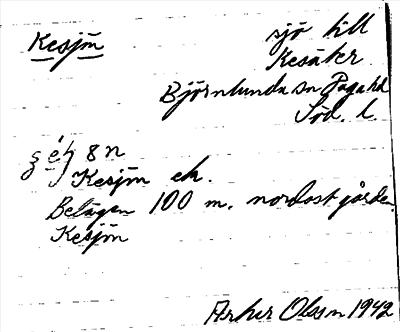 Kesjön
sjö till
Kesäter
Björnlunda sn Daga hd
Söd. l.
8 n
Kesjön ek.
Belägen 100 m. nordost gården
Kesjön
Olsson 1942